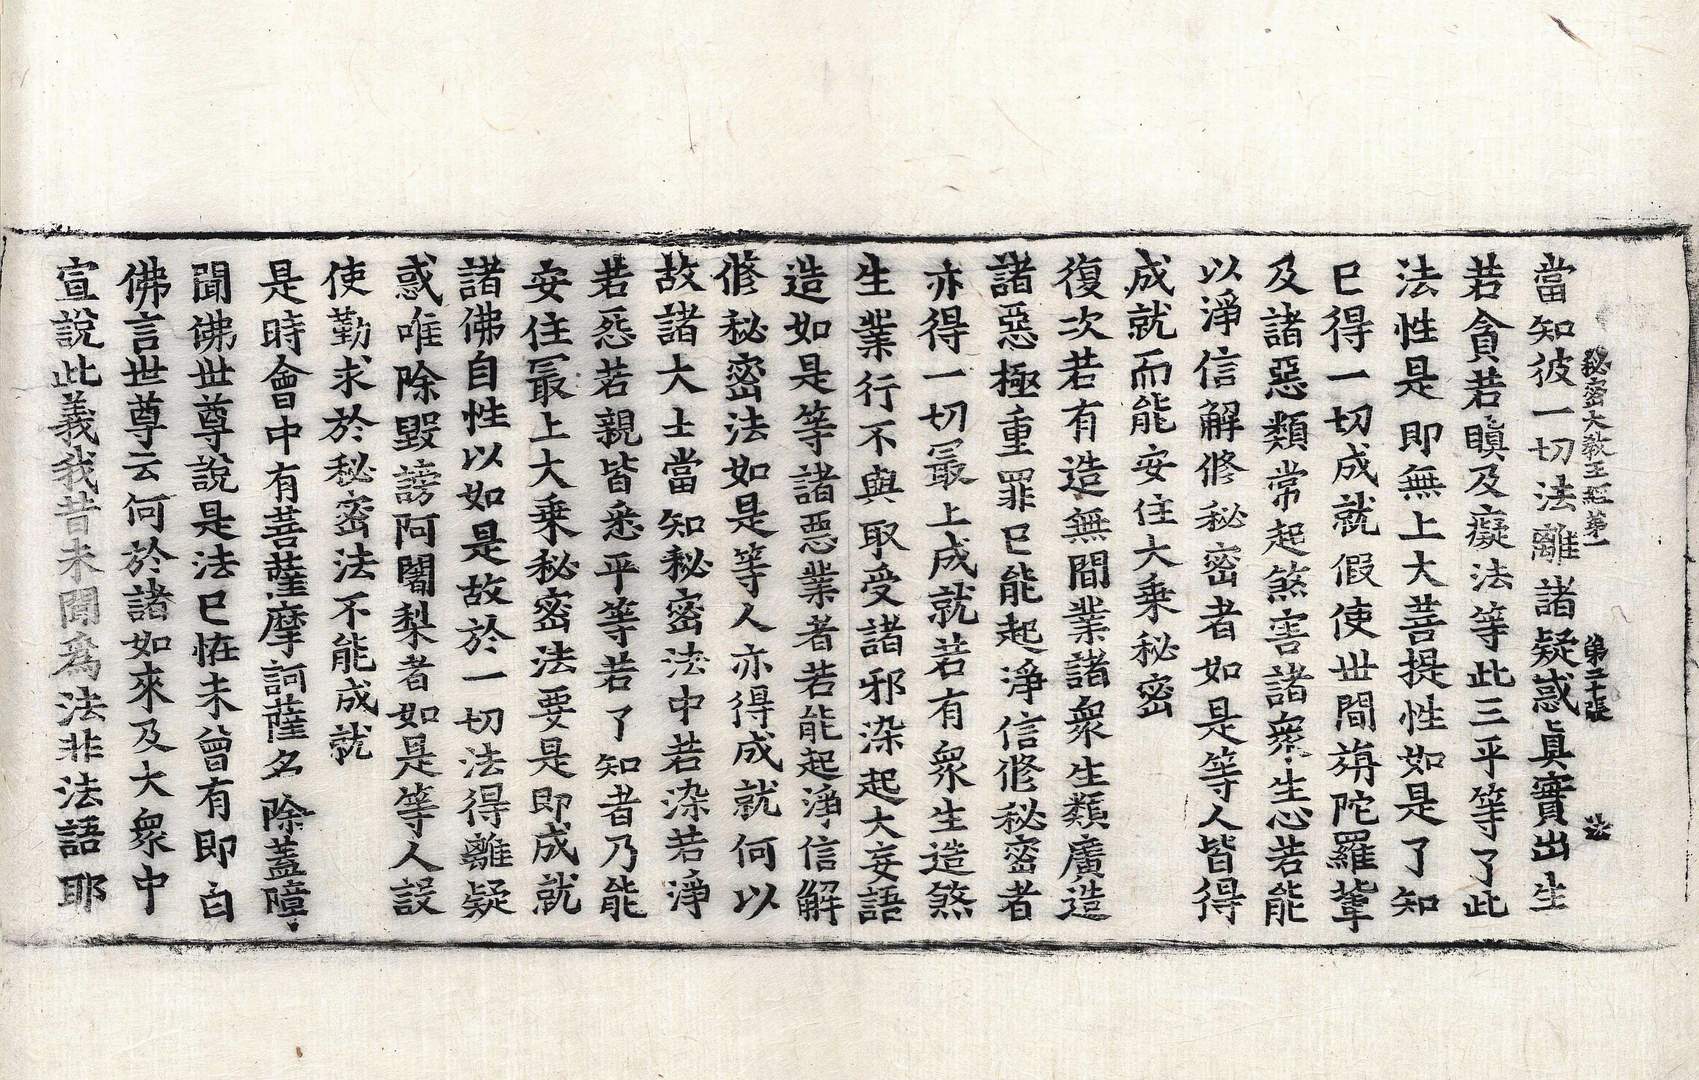 秘密大教王經第一　第二十張
當知彼一切法離諸疑惑真實出生
若貪若瞋及癡法等此三平等了此
法性是即無上大菩提性如是了知
已得一切成就假使世間旃陀羅輩
及諸惡類常起煞害諸衆生心若能
以淨信解修秘密者如是等人皆得
成就而能安住大乗秘密
復次若有造無間業諸衆生類廣造
諸惡極重罪已能起淨信修秘密者
亦得一切冣上成就若有衆生造煞
生業行不與取受諸邪染起大妄語
造如是等諸惡業者若能起淨信解
修秘密法如是等人亦得成就何以
故諸大士當知秘密法中若染若淨
若惌若親皆悉平等若了知者乃能
安住冣上大乗秘密法要是即成就
諸佛自性以如是故於一切法得離疑
惑唯除毀謗阿闍梨者如是等人設
使勤求於秘密法不能成就
是時會中有菩薩摩訶薩名除蓋障
聞佛世尊說是法已恠未曾有即白
佛言世尊云何於諸如來及大衆中
宣說此義我昔未聞爲法非法語耶